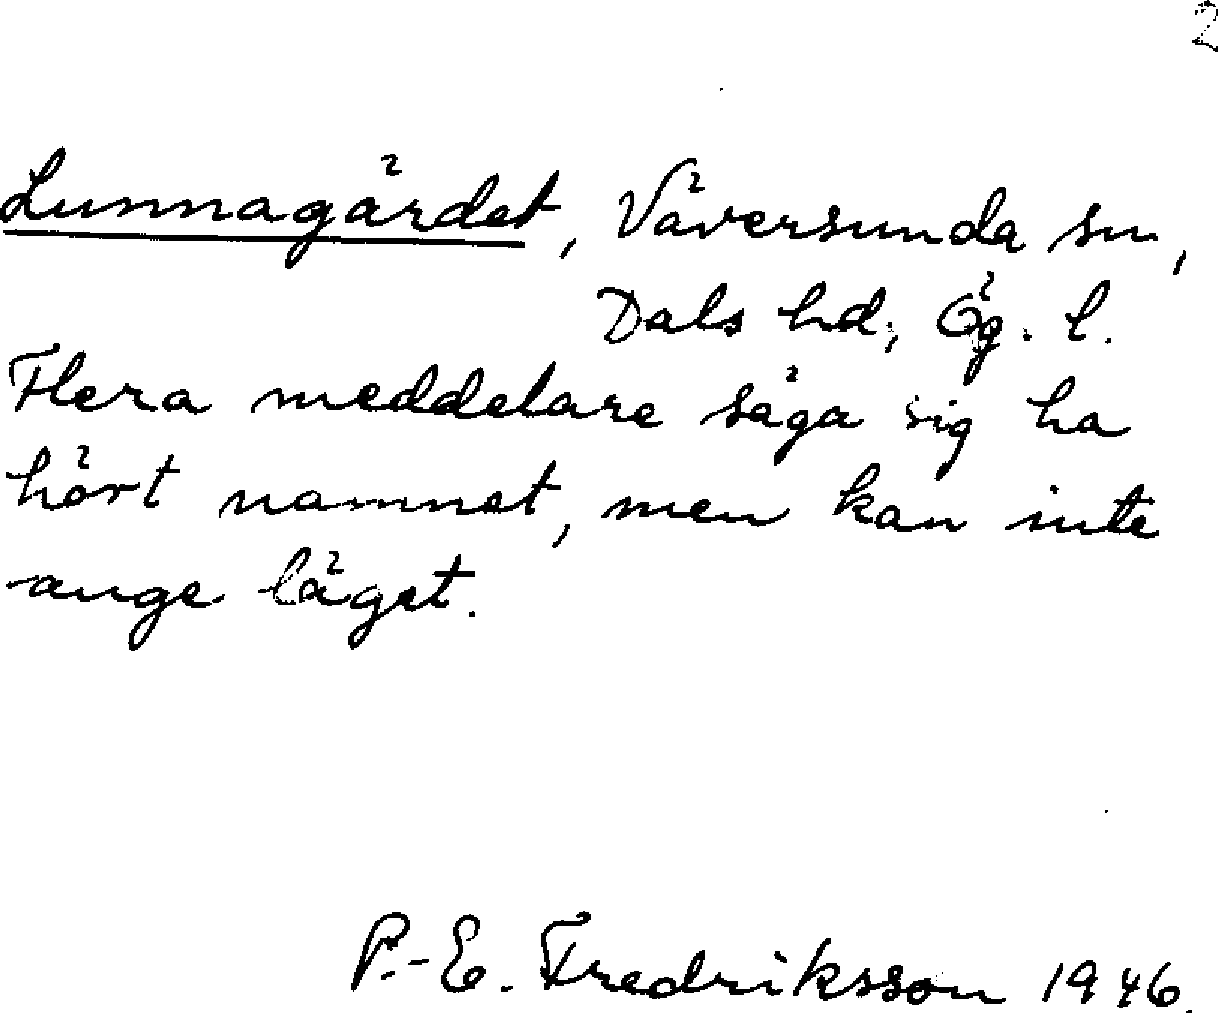 2
Lunnagärdet, Väversunda sn,
Dals hd, Ög. l.
Flera meddelare säga sig ha
hört namnet, men kan inte
ange läget.
P.-E. Fredriksson 1946.